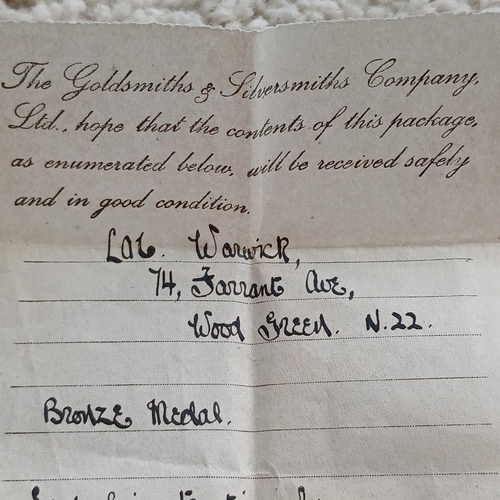 The Goldsmiths & Silversmiths Company,
Ltd., hope that the contents of this package,
as enumerated below, will be received safely
and in good condition.
Warwick,
74, Farrant Ave,
Wood Green. N.22.
Bronze Medal.